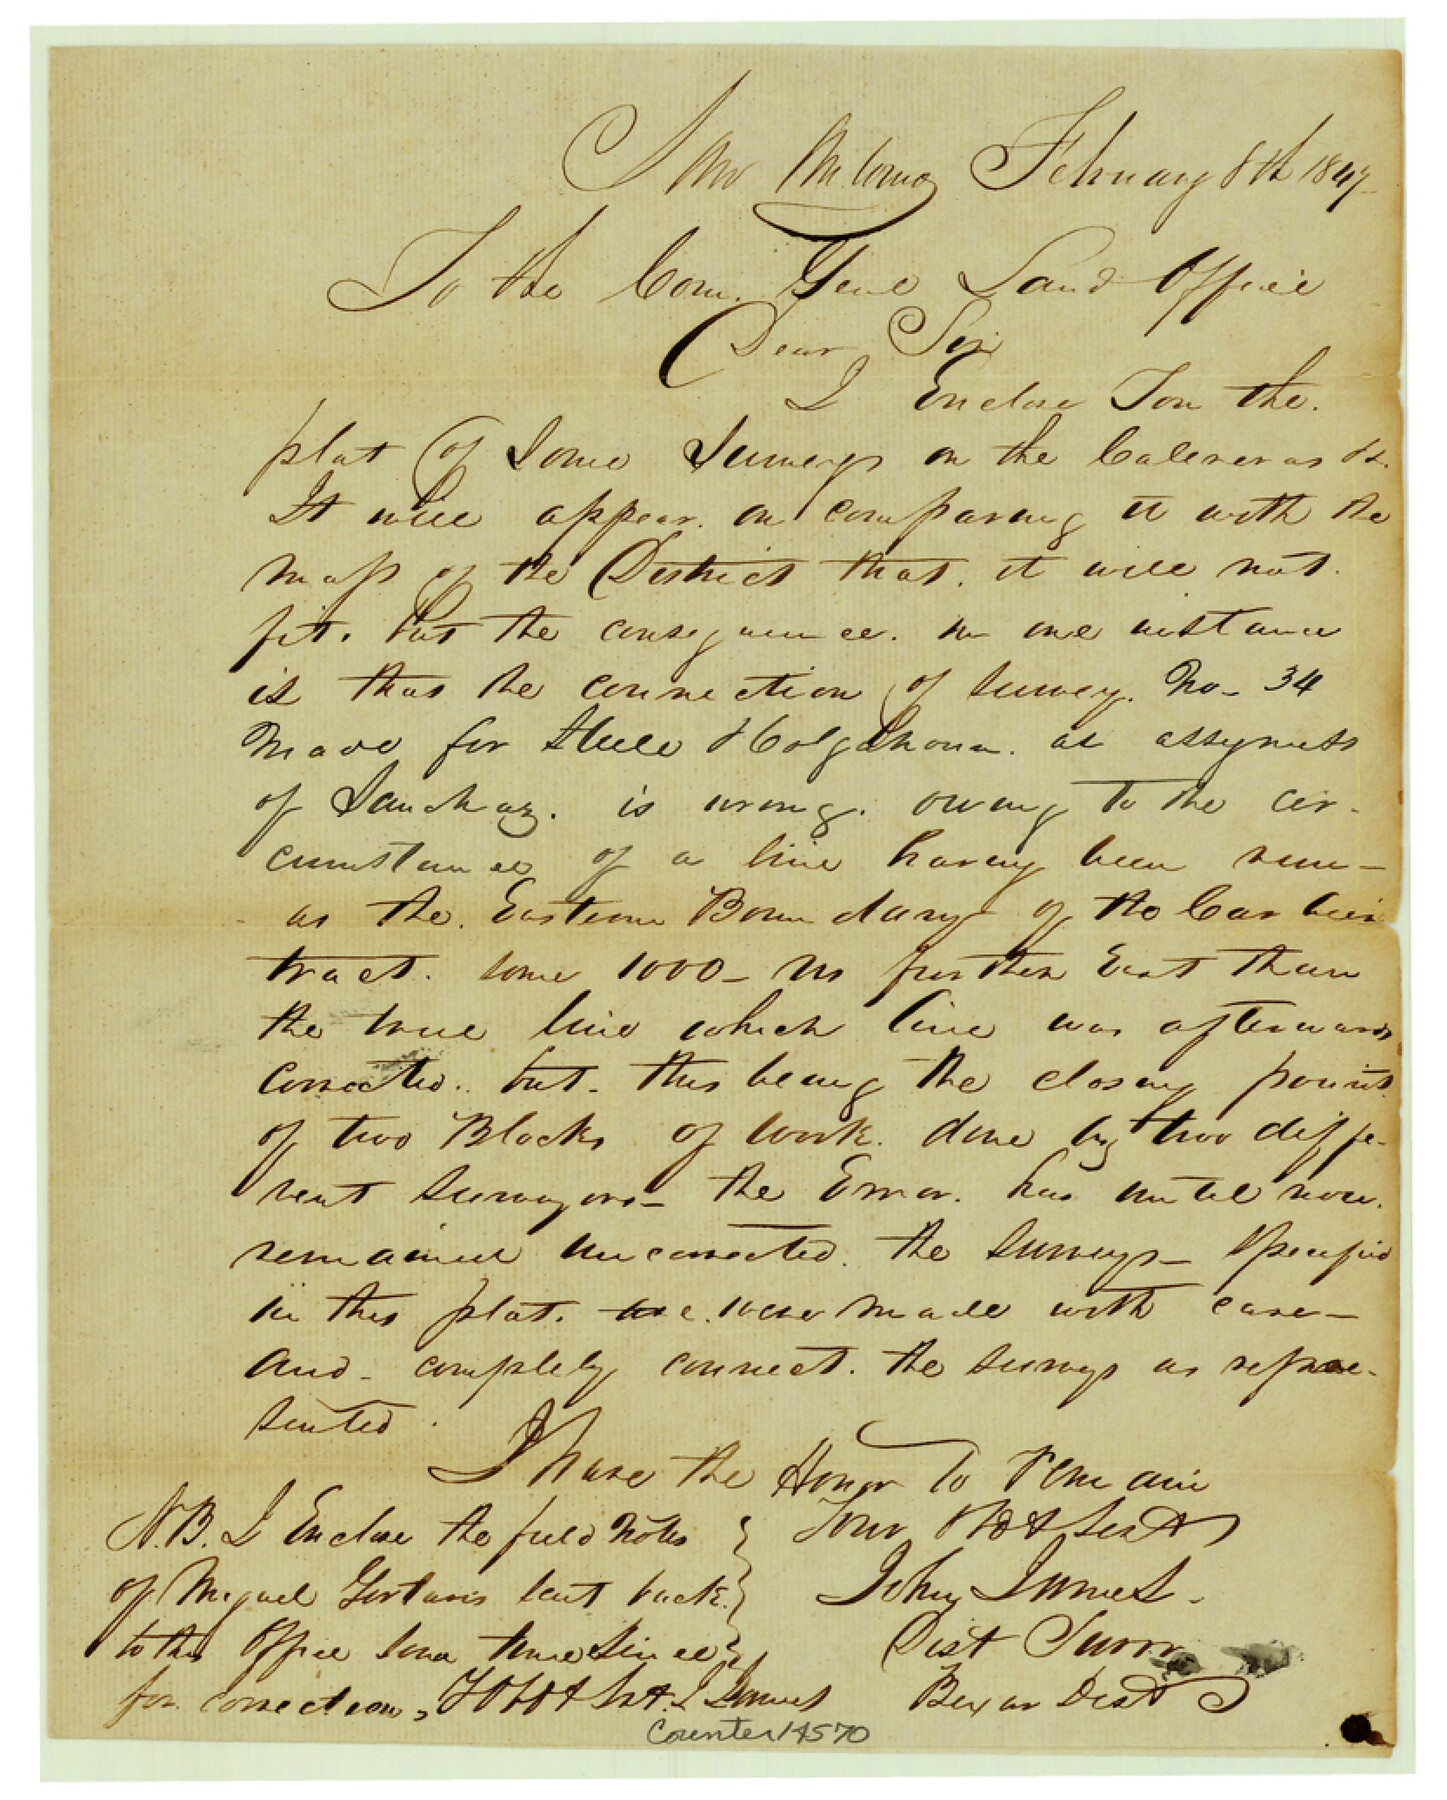 San Antonio February 8th 1847
To the Com. Genl Land Office
Dear Sir
I Enclose You the.
plat of Some Surveys on the Calaveras &c.
It will appear. on comparing it with the
map of the District that. it will not.
fit. but the consequence. in one instance
is that the connection of survey. No- 34
Made for Steele & as assignees
of Sanchez. is wrong. owing to the cir-
cumstance of a line having been run-
as the. Eastern Boundary of the
tract. some 1000- vs further East than
the true line which line was afterwards
corrected.. but. this being the closing point.
of two Blocks of work. done by two diffe-
rent surveyors- the Error. has until now.
remained uncorrected. the surveys- specified
in this plat. are were made with care-
and- completely connect. the surveys as repre-
sented.
I have the Honor to remain
Your Obt Servt
John James.
Dist Survr
Bexar Dist
N.B. I Enclose the field Notes
of Miguel sent back.
to this Office some time since
for correction, Y Obt St. J James
Counter 14570